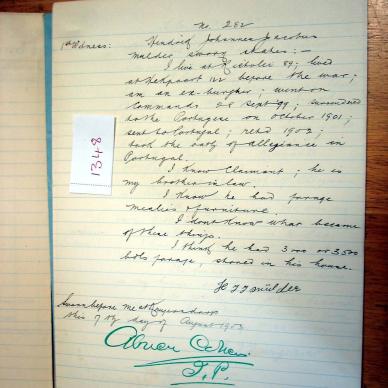 No. 282
1st Witness: Hendrik Johannes Jacobus
Mulder sworn states :-
I live at 89 ; lived
at 122 before the war ;
am an ex-burgher ; went on
commando 28 Sept 99 ; surrendered
to the Portugese on October 1901 ;
sent to Portugal ; retd 1902 ;
took the oath of allegiance in
Portugal.
I know Claimant ; he is
my brother in law.
I know he had forage
mealies & furniture.
I dont know what became
of these things.
I think he had 3000 or 3,500
bdls forage stored in his house.
H J J Mulder
Sworn before me at
this 7th day of August 1903
Abner Cohen
J.P.
1348